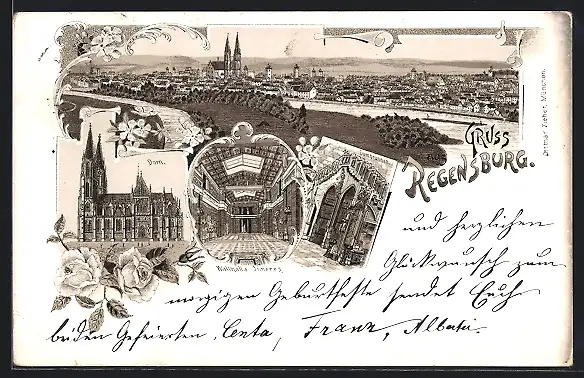 GRUSS
aus
REGENSBURG.
Ottmar Zieher, München.
Dom.
Walhalla Inneres
und herzlichen
Glückwunsch zum
morgigen Geburtsfeste sendet Euch
beiden Gefeierten, Centa, Franz,